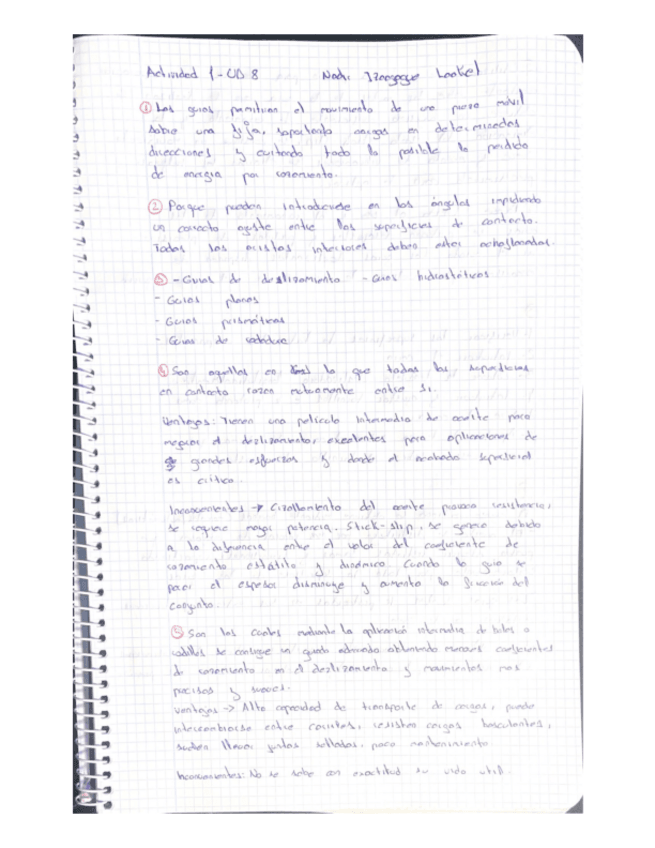 Actividad 1 - UD 8
① Las guias permitian el movimiento de una pieza movil
sobre una fija, soportando cargas en determinadas
direcciones y evitando todo lo posible la perdida
de energia por rozamiento.
② Porque pueden introducirse en los ángulos impidiendo
un correcto ajuste entre las superficies de contacto.
Todas las aristas interiores deben estar achaflanadas.
③ - Guias de deslizamiento - Guias hidrostáticas
- Guias planas
- Guias prismáticas
- Guias de rodadura
④ Son aquellas en la que todas las superficies
en contacto rozan mutuamente entre si.
Ventajas: Tienen una pelicula intermedia de aceite para
mejorar el deslizamiento, excelentes para aplicaciones de
grandes esfuerzos y donde el acabado superficial
es critico.
Inconvenientes → Cizallamiento del aceite provoca resistencia,
se requiere mayor potencia. Stick-slip, se genera debido
a la diferencia entre el valor del coeficiente de
rozamiento estatito y dinámico. Cuando la guia se
para el espesor disminuye y aumenta la fricción del
conjunto.
⑤ Son las cuales mediante la aplicación intermedia de bolas o
rodillos se consigue un guiado adecuado obteniendo menores coeficientes
de rozamiento en el deslizamiento y movimientos mas
precisos y suaves.
Ventajas → Alta capacidad de transporte de cargas, puede
intercambiarse entre carretes, resisten cargas basculantes,
suelen llevar juntas selladas, poco mantenimiento
Inconvenientes: No se sabe con exactitud su vida util.